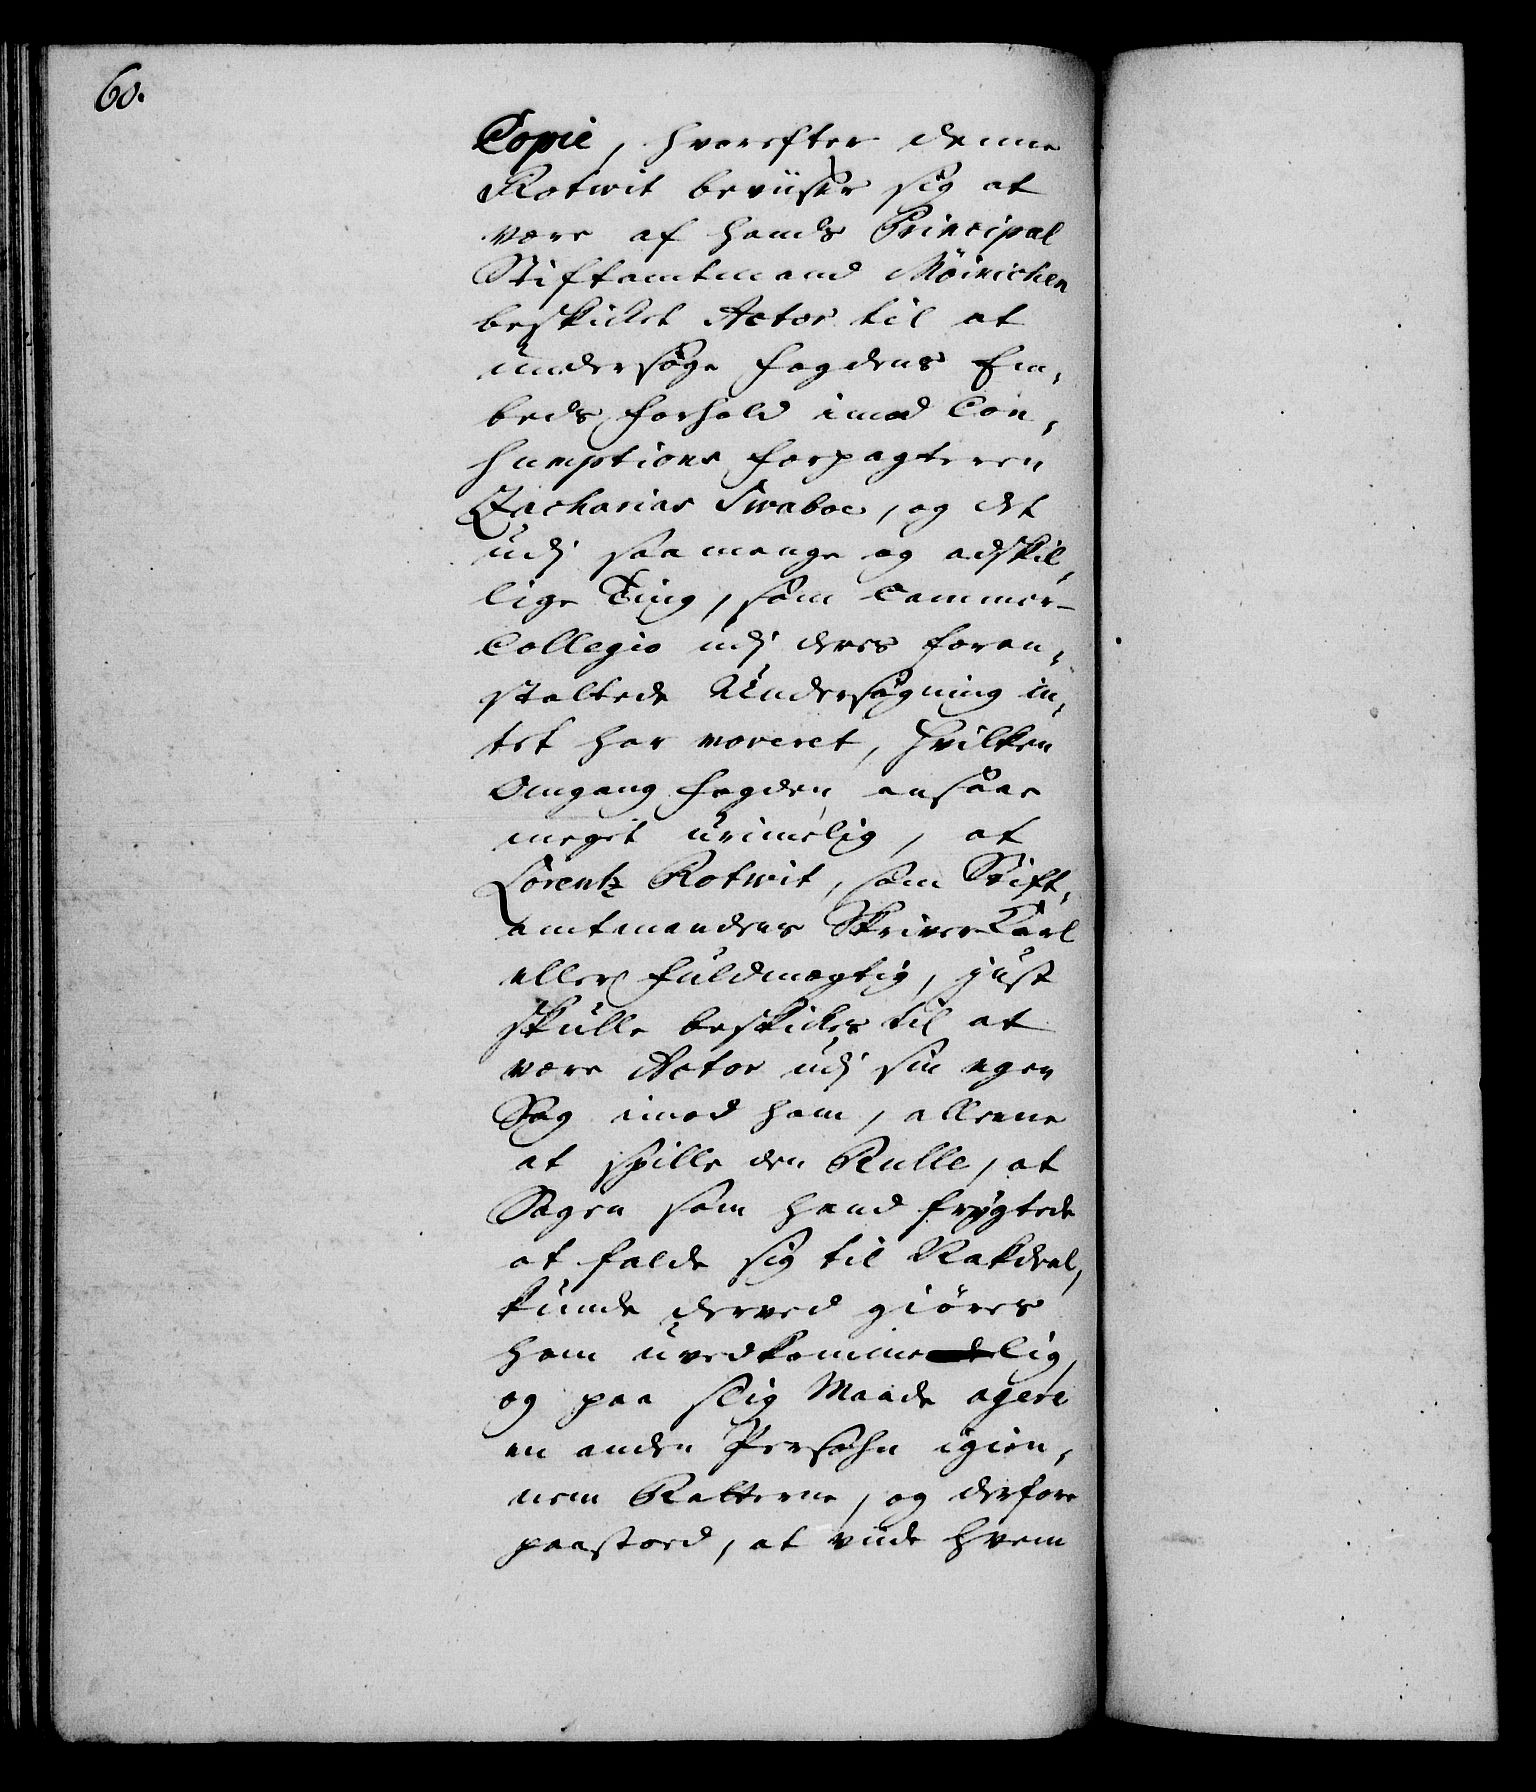 60.
Copie, hvorefter denne
Rotwit beviiser sig at
være af hands Principal
Stiftamtmand Möinichen
beskicket Actor til at
undersøge fogdens Em,
beds forhold imod Con,
sumptions forpagteren
Zacharias Swaboe, og det
udj saa mange og adskil,
lige Ting, som Cammer-
Collegio udj deres foran,
staltede Undersøgning in,
tet har moveret, hvilken
Omgang fogden ansaae
meget urimelig, at
Lorentz Rotwit, som Stift,
amtmandens Skriver Karl
eller fuldmægtig, just
skulle beskickes til at
være Actor udj sin egen
Sag imod ham, alleene
at spille den Rulle, at
Sagen som hand frygtede
at falde sig til Rakdeel,
kunde derved giöres
ham uvedkommelig,
og paa slig Maade agere
en anden Persohn igien,
nem Retterne, og derfore
paastoed, at viide hvem